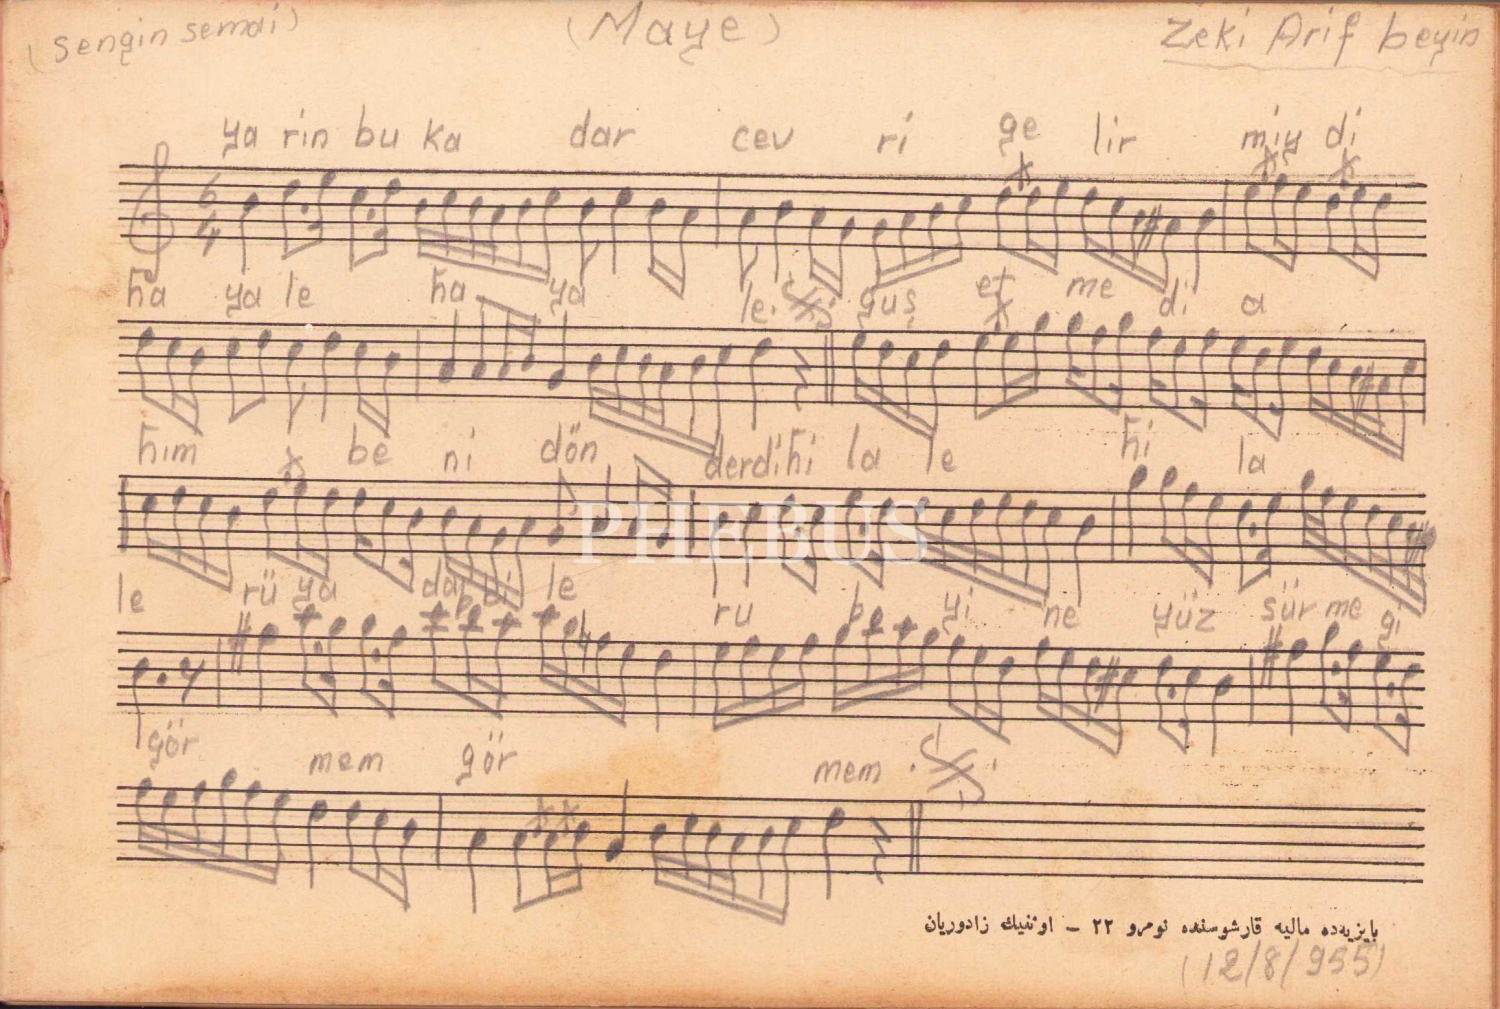 (sengin semai) (Maye) Zeki Arif beyin
ya rin bu ka dar cev ri ge lir miy di
6 4
ha ya le ha ya le. guş et me di a
him be ni dön derdihi la le hi la
PHEBUS
le rü ya da bi le ru be yi ne yüz sür me gi
gör mem gör mem
بایزیده مالیه قارشوسنده نومرو ٢٢ – اونیك زادوریان
(12/8/955)